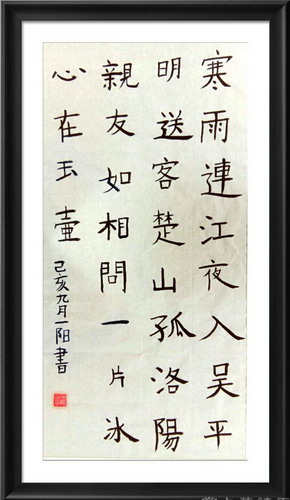 寒雨連江夜入吴平
明送客楚山孤洛陽
親友如相問一片冰
心在玉壺
己亥九月一阳書